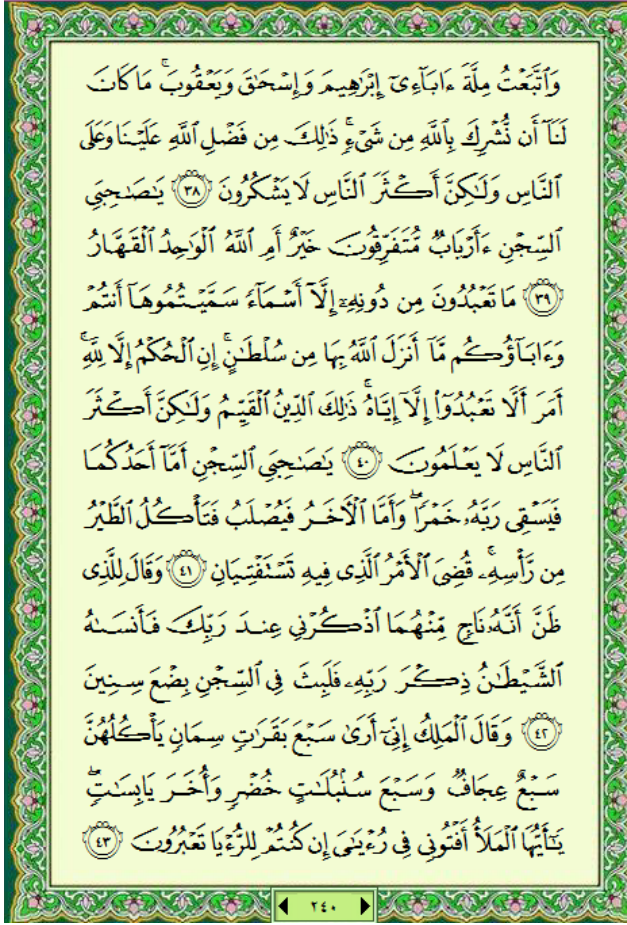 وَٱتَّبَعۡتُ مِلَّةَ ءَابَآءِيٓ إِبۡرَٰهِيمَ وَإِسۡحَٰقَ وَيَعۡقُوبَۚ مَا كَانَ
لَنَآ أَن نُّشۡرِكَ بِٱللَّهِ مِن شَيۡءٖۚ ذَٰلِكَ مِن فَضۡلِ ٱللَّهِ عَلَيۡنَا وَعَلَى
ٱلنَّاسِ وَلَٰكِنَّ أَكۡثَرَ ٱلنَّاسِ لَا يَشۡكُرُونَ ٣٨ يَٰصَٰحِبَيِ
ٱلسِّجۡنِ ءَأَرۡبَابٞ مُّتَفَرِّقُونَ خَيۡرٌ أَمِ ٱللَّهُ ٱلۡوَٰحِدُ ٱلۡقَهَّارُ
٣٩ مَا تَعۡبُدُونَ مِن دُونِهِۦٓ إِلَّآ أَسۡمَآءٗ سَمَّيۡتُمُوهَآ أَنتُمۡ
وَءَابَآؤُكُم مَّآ أَنزَلَ ٱللَّهُ بِهَا مِن سُلۡطَٰنٍۚ إِنِ ٱلۡحُكۡمُ إِلَّا لِلَّهِ
أَمَرَ أَلَّا تَعۡبُدُوٓاْ إِلَّآ إِيَّاهُۚ ذَٰلِكَ ٱلدِّينُ ٱلۡقَيِّمُ وَلَٰكِنَّ أَكۡثَرَ
ٱلنَّاسِ لَا يَعۡلَمُونَ ٤٠ يَٰصَٰحِبَيِ ٱلسِّجۡنِ أَمَّآ أَحَدُكُمَا
فَيَسۡقِي رَبَّهُۥ خَمۡرٗاۖ وَأَمَّا ٱلۡأٓخَرُ فَيُصۡلَبُ فَتَأۡكُلُ ٱلطَّيۡرُ
مِن رَّأۡسِهِۦۚ قُضِيَ ٱلۡأَمۡرُ ٱلَّذِي فِيهِ تَسۡتَفۡتِيَانِ ٤١ وَقَالَ لِلَّذِي
ظَنَّ أَنَّهُۥ نَاجٖ مِّنۡهُمَا ٱذۡكُرۡنِي عِندَ رَبِّكَ فَأَنسَىٰهُ
ٱلشَّيۡطَٰنُ ذِكۡرَ رَبِّهِۦ فَلَبِثَ فِي ٱلسِّجۡنِ بِضۡعَ سِنِينَ
٤٢ وَقَالَ ٱلۡمَلِكُ إِنِّيٓ أَرَىٰ سَبۡعَ بَقَرَٰتٖ سِمَانٖ يَأۡكُلُهُنَّ
سَبۡعٌ عِجَافٞ وَسَبۡعَ سُنۢبُلَٰتٍ خُضۡرٖ وَأُخَرَ يَابِسَٰتٖۖ
يَٰٓأَيُّهَا ٱلۡمَلَأُ أَفۡتُونِي فِي رُءۡيَٰيَ إِن كُنتُمۡ لِلرُّءۡيَا تَعۡبُرُونَ ٤٣
٢٤٠